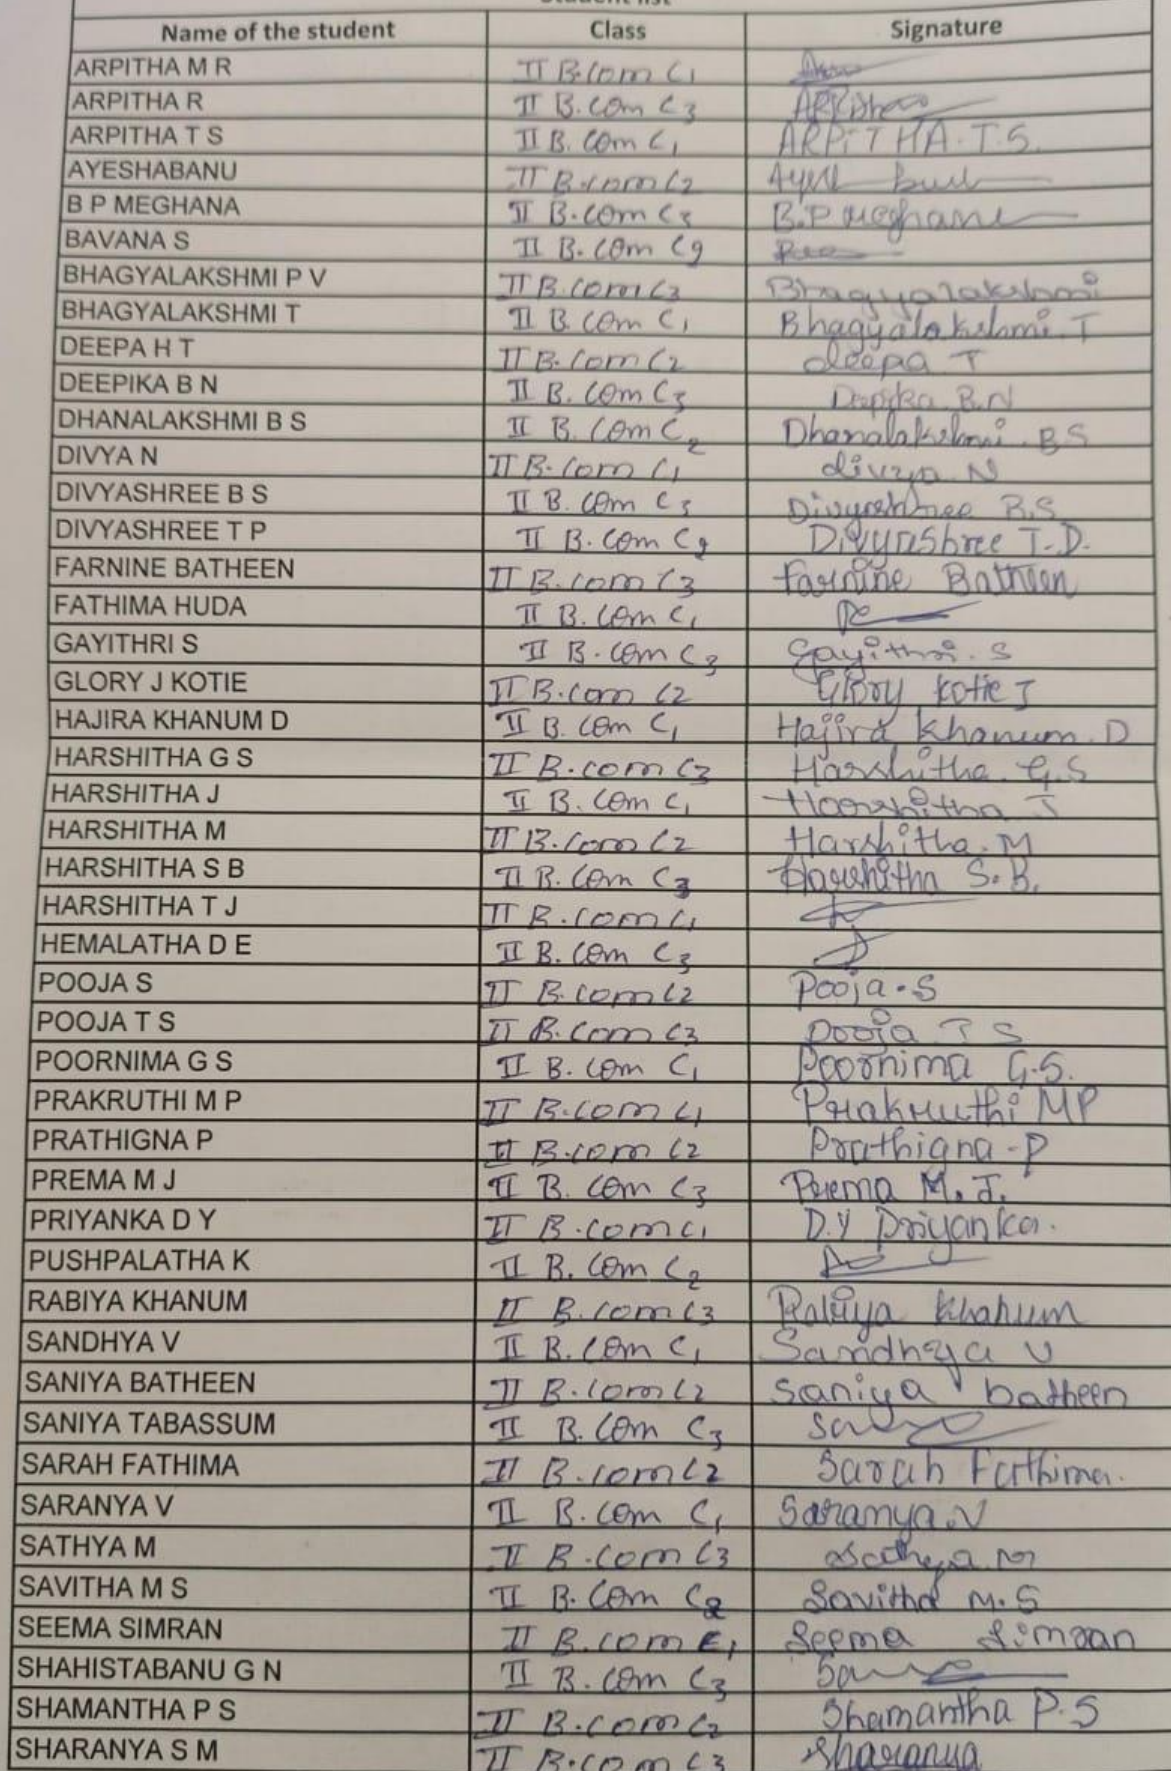 Student list
Name of the student Class Signature
ARPITHA M R II B.com C1
ARPITHA R II B. com C3 ARPitha
ARPITHA T S II B. com C1 ARPITHA.T.S.
AYESHABANU II B.com C2
B P MEGHANA II B.com C3 B.P Meghana
BAVANA S II B. com C2
BHAGYALAKSHMI P V II B.com C3 Bhagyalakshmi
BHAGYALAKSHMI T II B com C1 Bhagyalakshmi.T
DEEPA H T II B.com C2 deepa T
DEEPIKA B N II B. com C3 Deepika B.N
DHANALAKSHMI B S II B. com C2 Dhanalakshmi.BS
DIVYA N II B.com C1 divya.N
DIVYASHREE B S II B. com C3 Divyashree B.S
DIVYASHREE T P II B. com C2 Divyashree T.D.
FARNINE BATHEEN II B.com C3 Farnine Batheen
FATHIMA HUDA II B. com C1
GAYITHRI S II B. com C3 Gayithri.S
GLORY J KOTIE II B.com C2 Glory Kotie J
HAJIRA KHANUM D II B. com C1 Hajira Khanum.D
HARSHITHA G S II B.com C3 Harshitha.G.S
HARSHITHA J II B. com C1 Harshitha J
HARSHITHA M II B.com C2 Harshitha.M
HARSHITHA S B II B. com C3 Harshitha S.B.
HARSHITHA T J II B.com C1
HEMALATHA D E II B. com C3
POOJA S II B.com C2 Pooja.S
POOJA T S II B.com C3 Pooja T S
POORNIMA G S II B. com C1 Poornima G.S.
PRAKRUTHI M P II B.com C1 Prakruthi MP
PRATHIGNA P II B.com C2 Prathigna-P
PREMA M J II B. com C3 Prema M.J.
PRIYANKA D Y II B.com C1 D.Y Priyanka.
PUSHPALATHA K II B. com C2
RABIYA KHANUM II B.com C3 Rabiya Khanum
SANDHYA V II B. com C1 Sandhya V
SANIYA BATHEEN II B.com C2 Saniya batheen
SANIYA TABASSUM II B. com C3
SARAH FATHIMA II B.com C2 Sarah Fathima.
SARANYA V II B. com C1 Saranya.V
SATHYA M II B.com C3 Sathya.M
SAVITHA M S II B. com C2 Savitha M.S
SEEMA SIMRAN II B.com C1 Seema Simran
SHAHISTABANU G N II B. com C3
SHAMANTHA P S II B.com C2 Shamantha P.S
SHARANYA S M II B.com C3 Sharanya